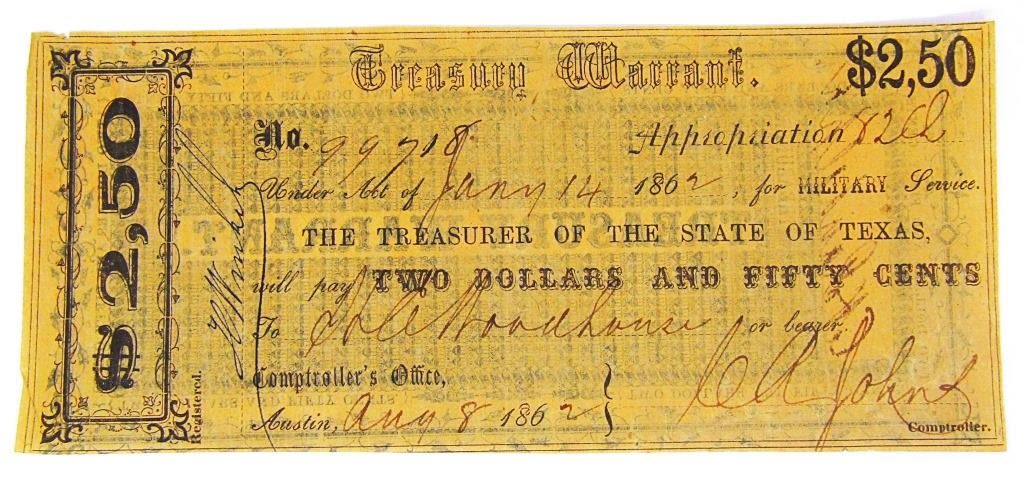 Treasury Warrant.
$2,50
$2,50
No. 99718 Appropriation
Under Act of Jany 14 1862, for MILITARY Service.
THE TREASURER OF THE STATE OF TEXAS,
will pay TWO DOLLARS AND FIFTY CENTS
To Woodhouse or bearer.
Comptroller's Office,
Austin, Aug 8 1862
C A Johns
Comptroller.
Registered.